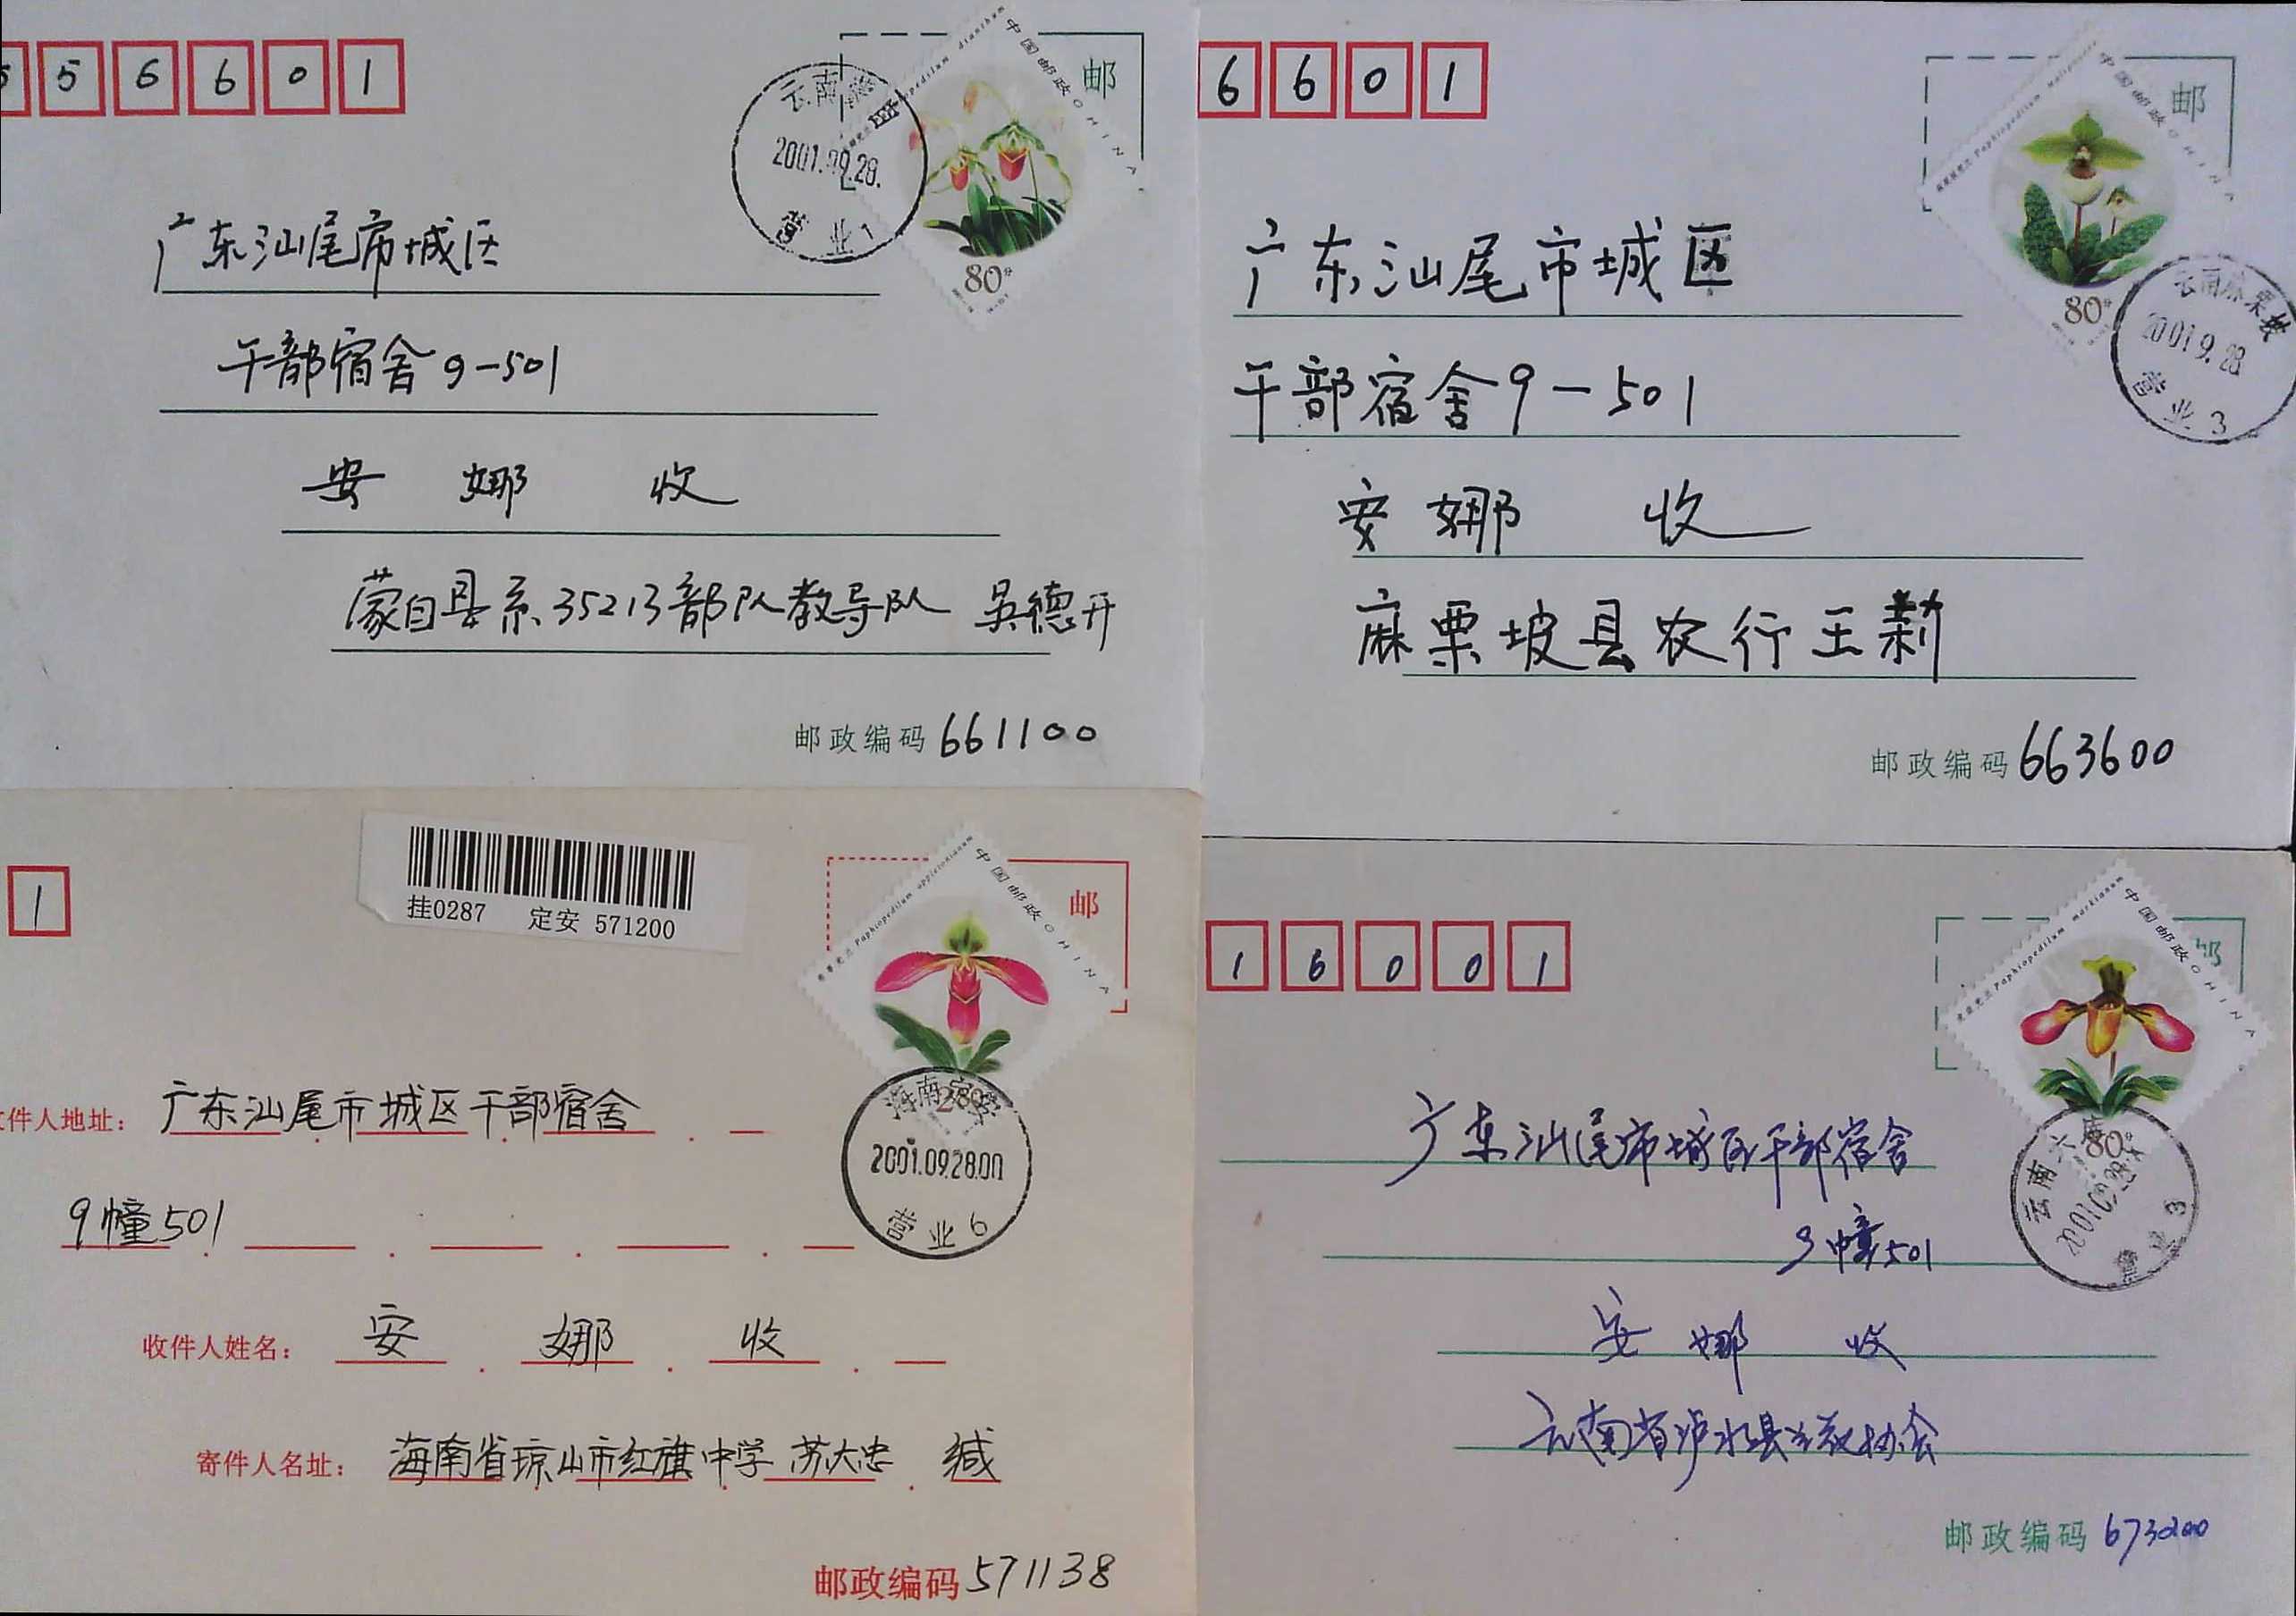 5 5 6 6 0 1
中国邮政 CHINA
邮
80分
2001.09.28.
营业1
广东汕尾市城区
干部宿舍9-501
安 娜 收
蒙自县系35213部队教导队 吴德开
邮政编码 661100
6 6 0 1
中国邮政 CHINA
邮
80分
云南麻栗坡
2001.9.28
营业3
广东汕尾市城区
干部宿舍9-501
安娜 收
麻栗坡县农行王莉
邮政编码 663600
1
挂0287 定安 571200
Paphiopedilum appletonianum
中国邮政 CHINA
邮
海南定安
280
2001.09.28.00
营业6
件人地址： 广东汕尾市城区干部宿舍
9幢501
收件人姓名： 安 娜 收
寄件人名址： 海南省琼山市红旗中学 苏大忠 缄
邮政编码 571138
1 6 0 0 1
Paphiopedilum markianum
中国邮政 CHINA
80分
云南六库
2001.09.28
营业3
广东汕尾市城区干部宿舍
9幢501
安 娜 收
云南省泸水县兰花协会
邮政编码 673200